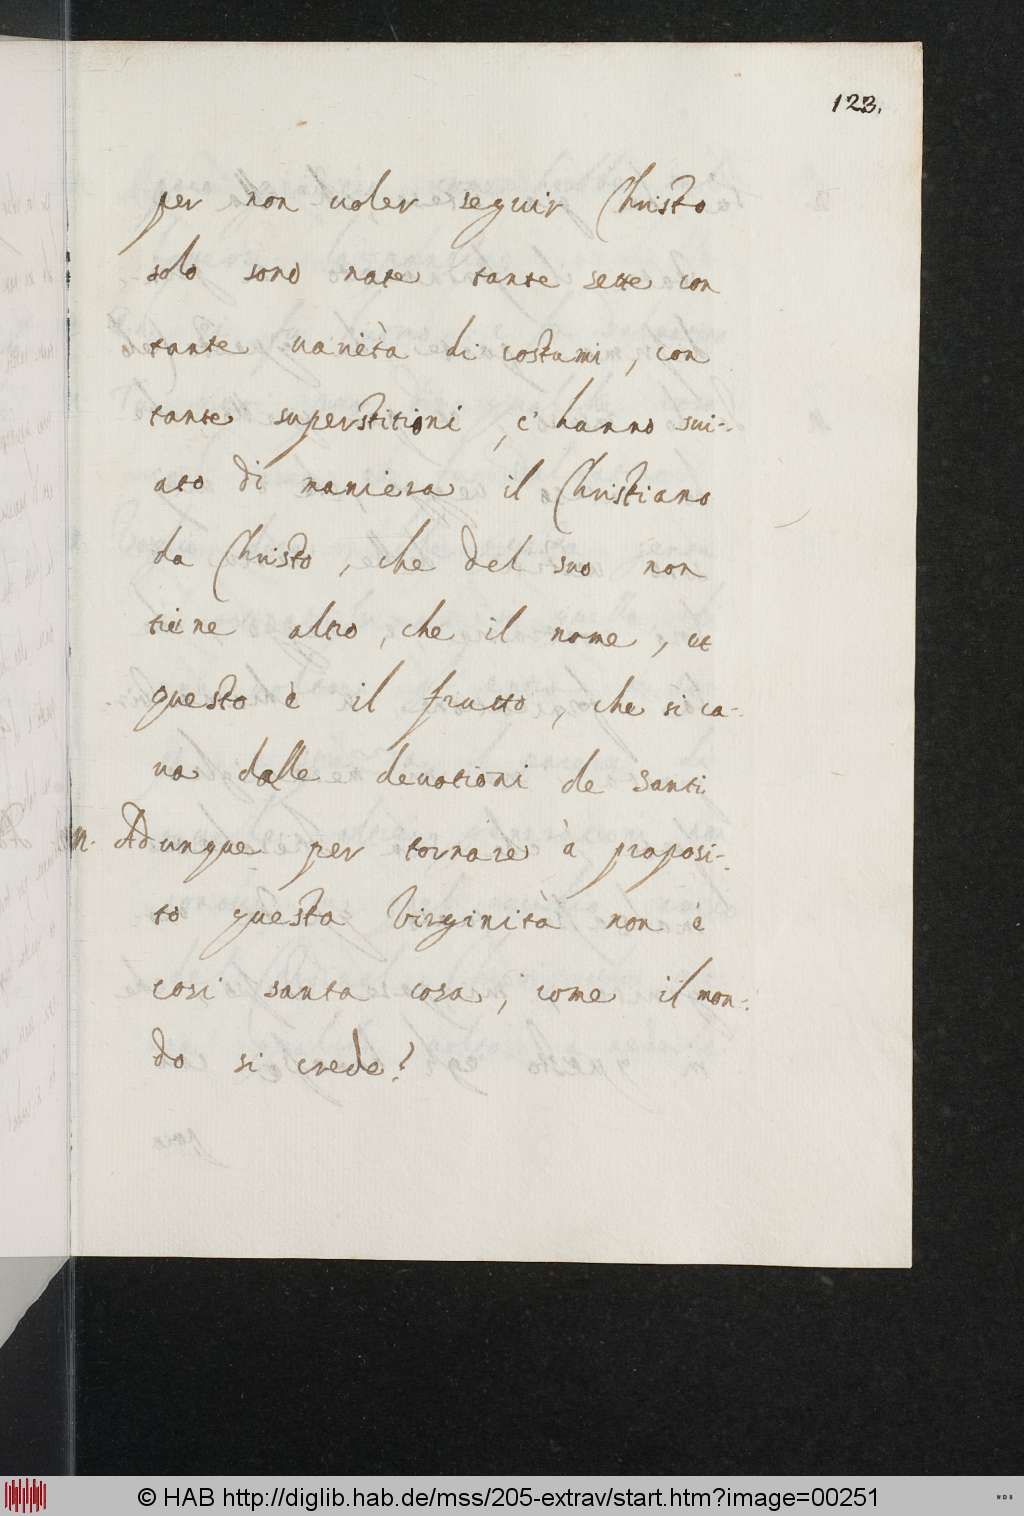 123.
per non uoler seguir Christo
solo sono nate tante sette con
tante uarietà di costumi, con
tante superstitioni, e' hanno sui-
ato di maniera il Christiano
da Christo, che del suo non
tiene altro, che il nome, et
questo è il frutto, che si ca-
ua dalle deuotioni de Santi
M. Adunque per tornare à proposi-
to questa Virginità non è
cosi santa cosa, come il mon-
do si crede?
© HAB http://diglib.hab.de/mss/205-extrav/start.htm?image=00251